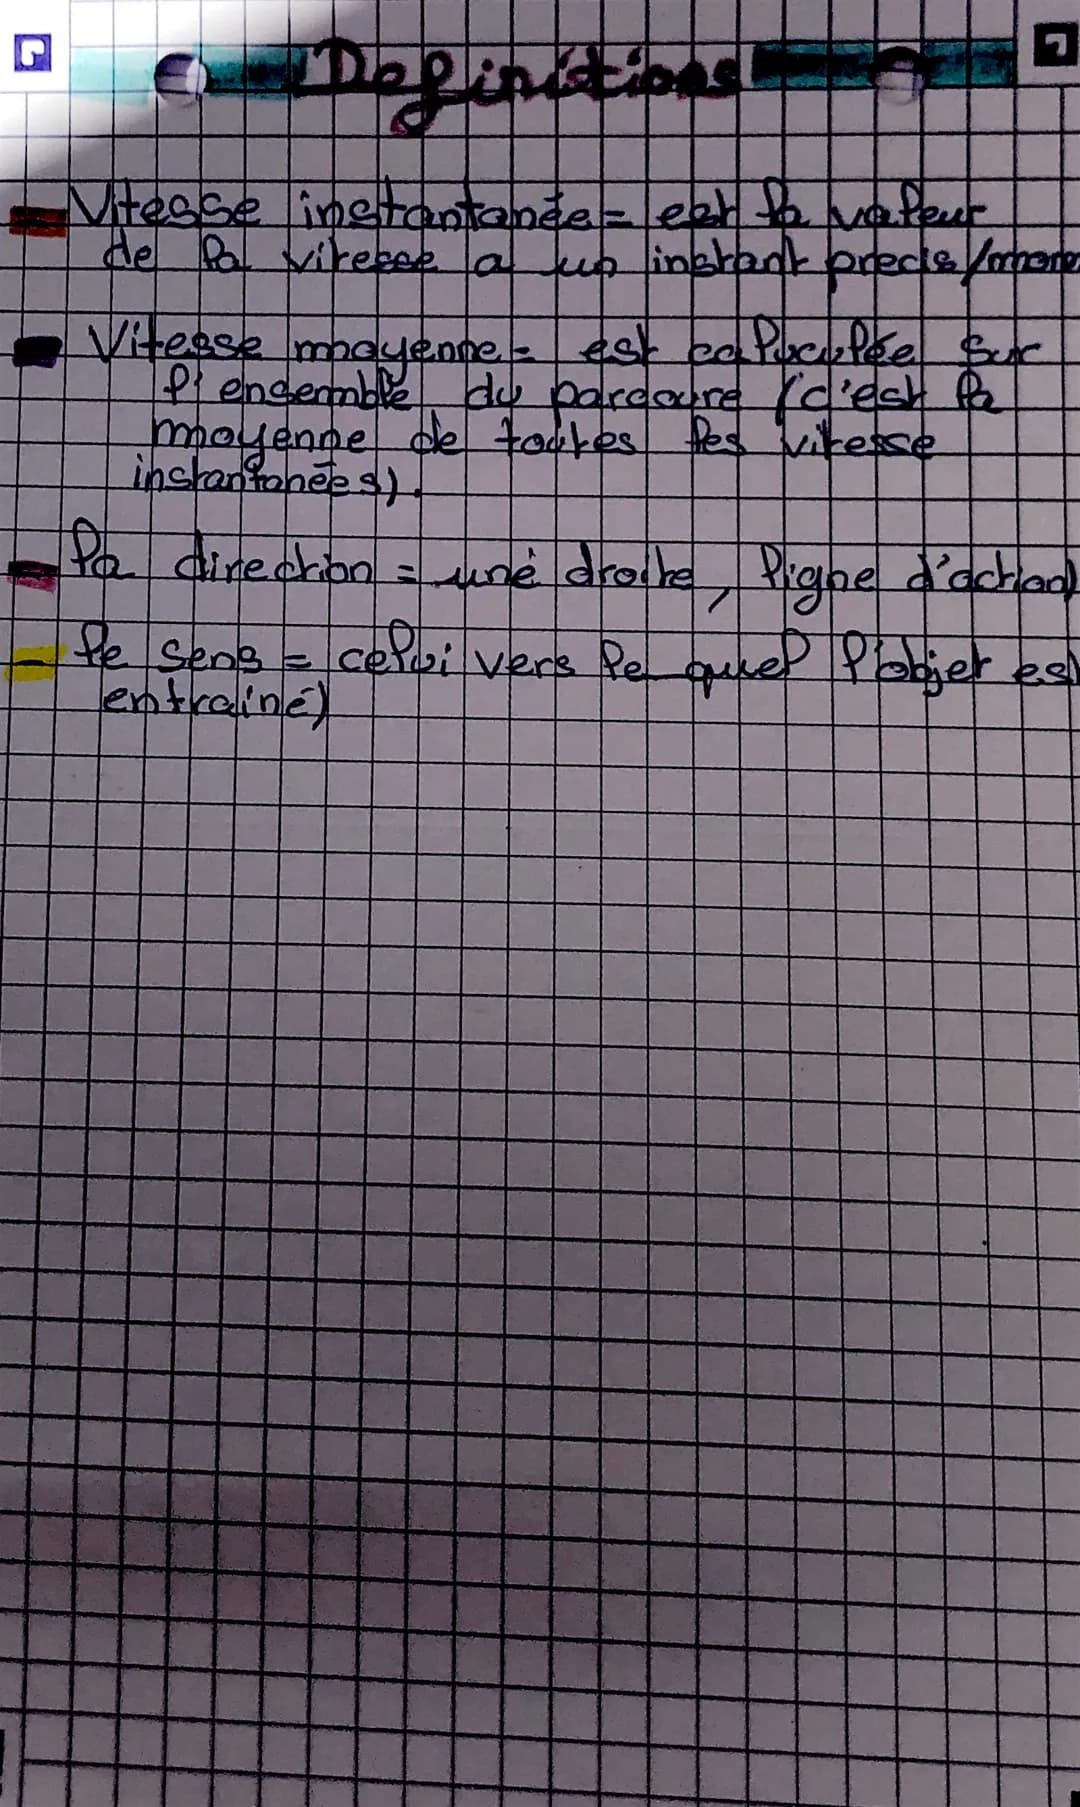 Definitions
Vitesse instantanée = est la valeur
de la vitesse a un instant precis/mome
Vitesse moyenne = est calculée sur
l'ensemble du parcours (c'est la
moyenne de toutes les vitesse
instantanées).
la direction = une droite, ligne d'action)
le sens = celui vers le quel l'objet est
entrainé)